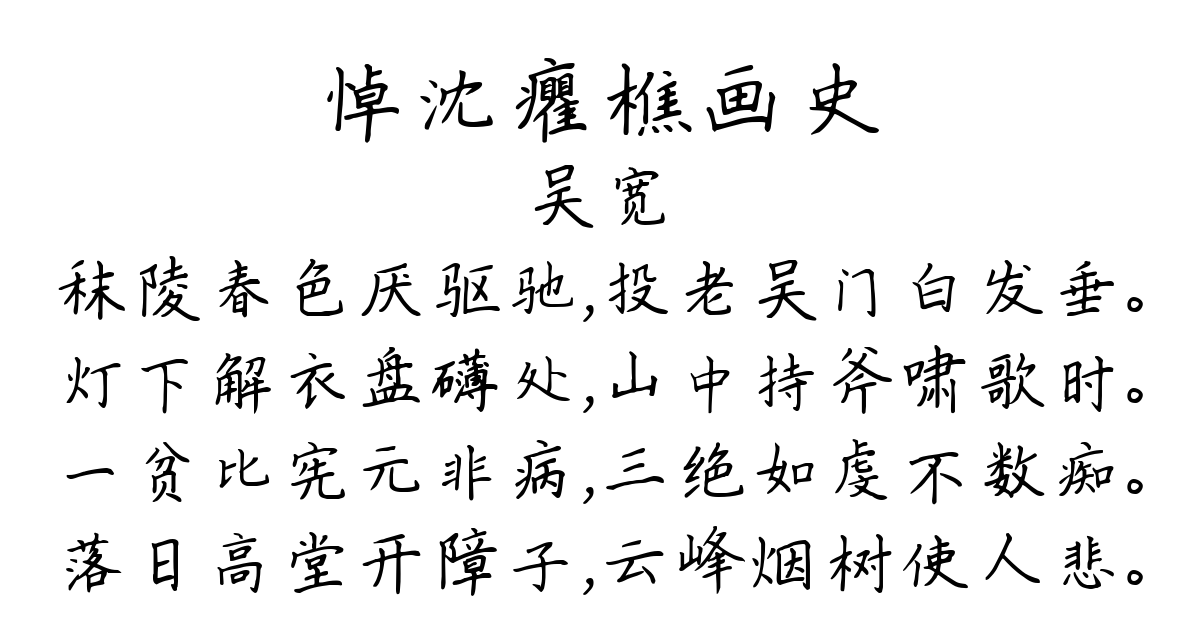 悼沈癯樵画史
吴宽
秣陵春色厌驱驰,投老吴门白发垂。
灯下解衣盘礴处,山中持斧啸歌时。
一贫比宪元非病,三绝如虔不数痴。
落日高堂开障子,云峰烟树使人悲。